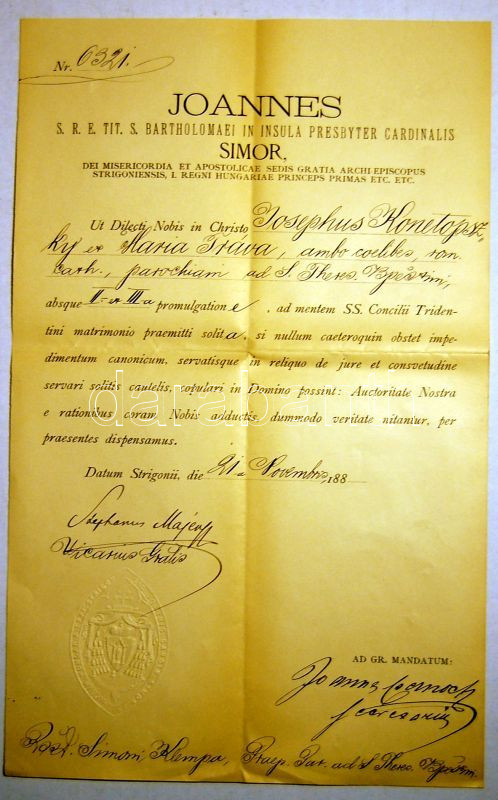 Nr. 6321.
JOANNES
S. R. E. TIT. S. BARTHOLOMAEI IN INSULA PRESBYTER CARDINALIS
SIMOR,
DEI MISERICORDIA ET APOSTOLICAE SEDIS GRATIA ARCHI-EPISCOPUS
STRIGONIENSIS, I. REGNI HUNGARIAE PRINCEPS PRIMAS ETC. ETC.
Ut Dilecti Nobis in Christo Josephus Konetops
ky et Maria Trava, ambo coelibes, rom.
cath., parochiam ad S. Theres. Bpestini,
absque II-a et III-a promulgatione, ad mentem SS. Concilii Triden-
tini matrimonio praemitti solita, si nullum caeteroquin obstet impe-
dimentum canonicum, servatisque in reliquo de jure et consvetudine
servari solitis cautelis, copulari in Domino possint: Auctoritate Nostra
e rationibus coram Nobis adductis, dummodo veritate nitantur, per
praesentes dispensamus.
darabanth
Datum Strigonii, die 21-a Novembris, 188
Stephanus Majer
Vicarius Gralis
AD GR. MANDATUM:
Joannes Csernoch
secretarius
Simoni Klempa, Praep. Par. ad S. Theres. Bpestini.